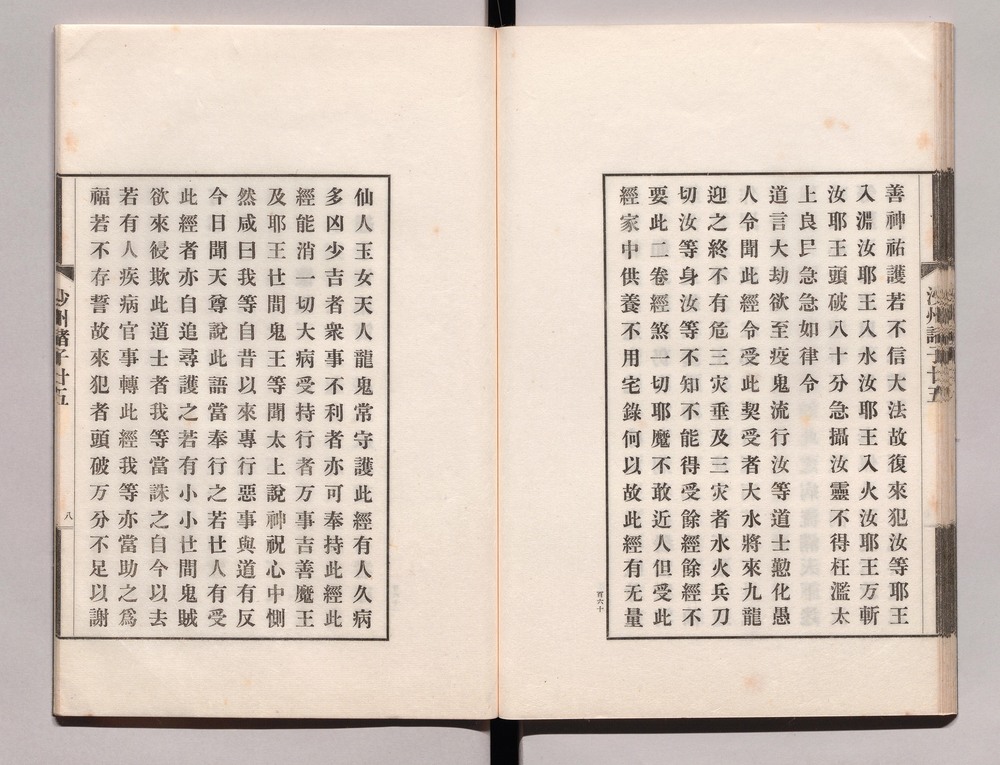 善神祐護若不信大法故復來犯汝等耶王
入淵汝耶王入水汝耶王入火汝耶王万斬
汝耶王頭破八十分急攝汝靈不得枉濫太
上良民急急如律令
道言大劫欲至疫鬼流行汝等道士懃化愚
人令聞此經令受此契受者大水將來九龍
迎之終不有危三灾垂及三灾者水火兵刀
切汝等身汝等不知不能得受餘經餘經不
要此二卷經煞一切耶魔不敢近人但受此
經家中供養不用宅錄何以故此經有无量
百六十
仙人玉女天人龍鬼常守護此經有人久病
多凶少吉者衆事不利者亦可奉持此經此
經能消一切大病受持行者万事吉善魔王
及耶王世間鬼王等聞太上說神祝心中惻
然咸曰我等自昔以來專行惡事與道有反
今日聞天尊說此語當奉行之若世人有受
此經者亦自追尋護之若有小小世間鬼賊
欲來侵欺此道士者我等當誅之自今以去
若有人疾病官事轉此經我等亦當助之爲
福若不存誓故來犯者頭破万分不足以謝
沙州諸子廿五
八